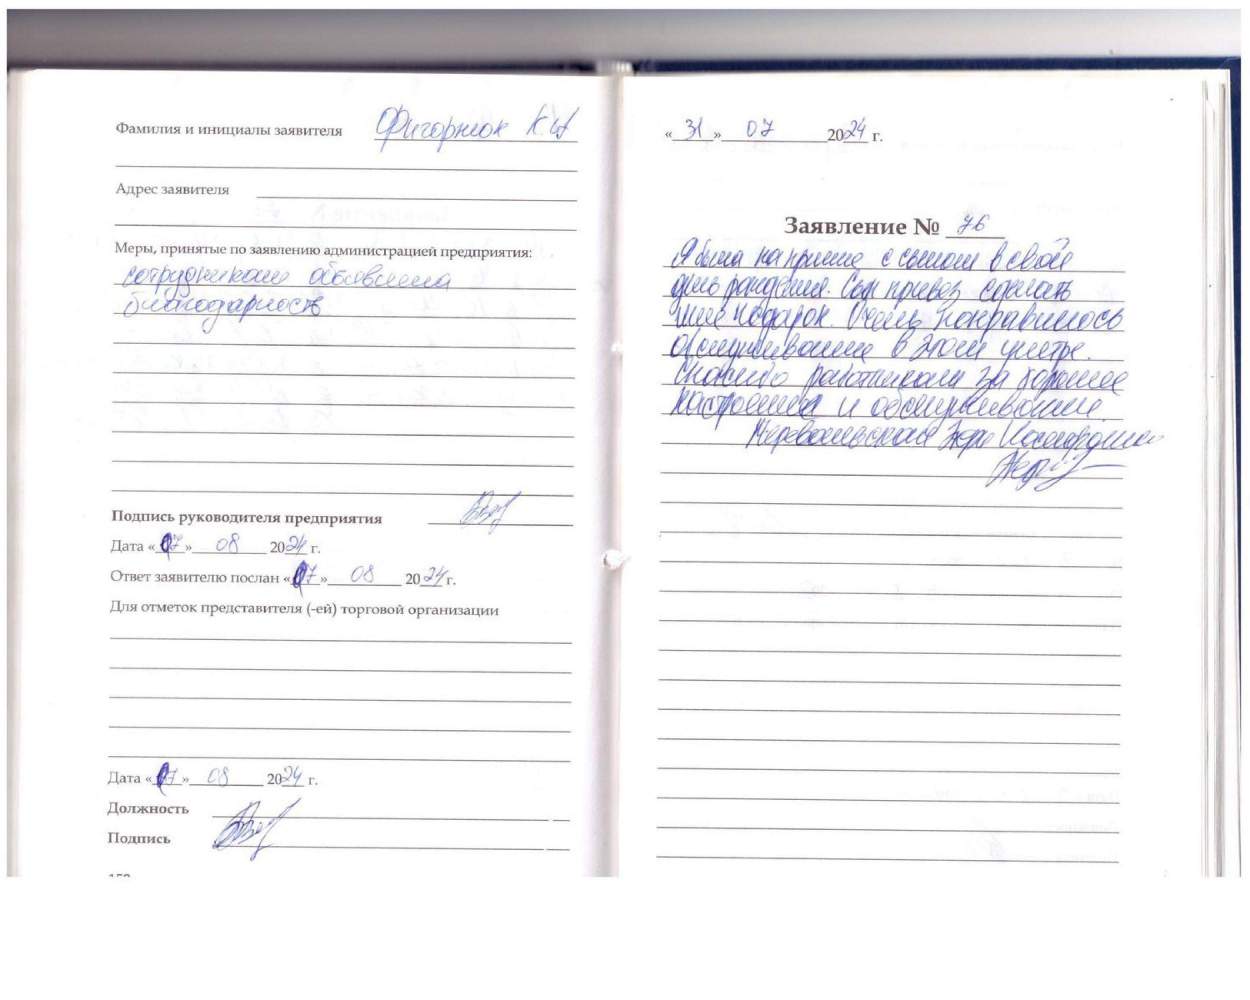 Фамилия и инициалы заявителя Фигорнюк К.И
Адрес заявителя
Меры, принятые по заявлению администрацией предприятия:
сотрудникам объявлена
благодарность
Подпись руководителя предприятия
Дата «07» 08 2024 г.
Ответ заявителю послан «07» 08 2024 г.
Для отметок представителя (-ей) торговой организации
Дата «07» 08 2024 г.
Должность
Подпись
«31» 07 2024 г.
Заявление № 76
Я была на приеме с сыном в свой
день рождения. Сын привез сделать
мне подарок. Очень понравилось
обслуживание в этом центре.
Спасибо работникам за хорошее
настроение и обслуживание